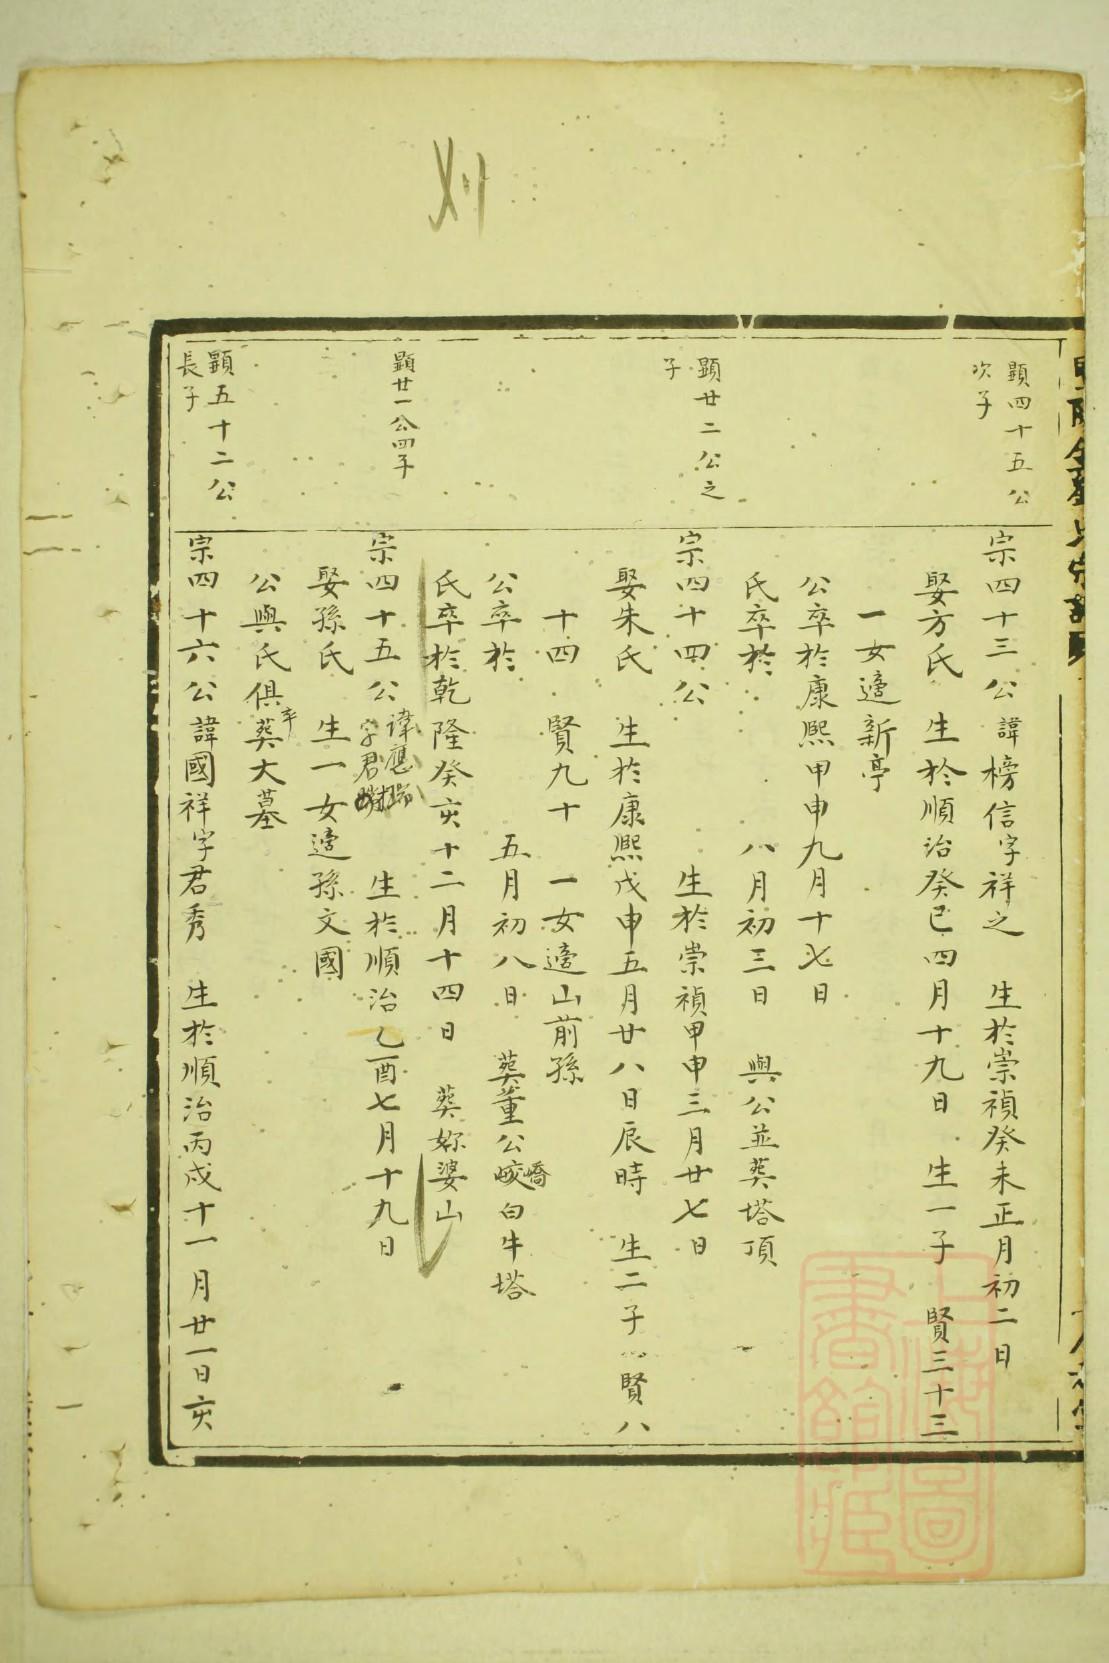 顯四十五公
次子
宗四十三公諱榜信字祥之 生於崇禎癸未正月初二日
娶方氏 生於順治癸巳四月十九日 生一子 賢三十三
一女適新亭
公卒於康熙甲申九月十七日
氏卒於 八月初三日 與公並葬塔頂
顯廿二公之
子
宗四十四公 生於崇禎甲申三月廿七日
娶朱氏 生於康熙戊申五月廿八日辰時 生二子 賢八
十四 賢九十 一女適山前孫
公卒於 五月初八日 葬董公嶠白牛塔
氏卒於乾隆癸亥十二月十四日 葬婆山
顯廿一公四子
宗四十五公諱應瑞字君 生於順治乙酉七月十九日
娶孫氏 生一女適孫文國
公與氏俱卒葬大墓
顯五十二公
長子
宗四十六公諱國祥字君秀 生於順治丙戌十一月廿一日亥
上海圖書館藏